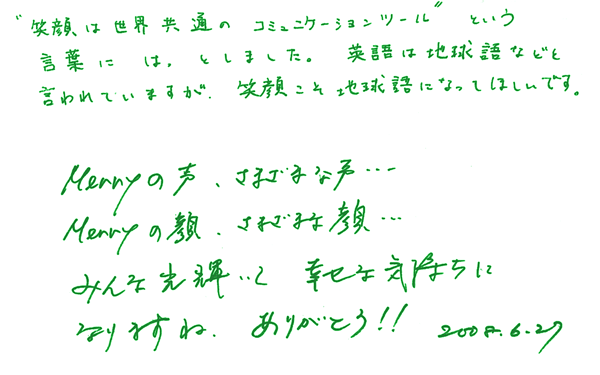 "笑顔は世界共通のコミュニケーションツール"という
言葉には、はっとしました。英語は地球語などと
言われていますが、笑顔こそ地球語になってほしいです。
Merryの声、さまざまな声…
Merryの顔、さまざまな顔…
みんな光輝いて 幸せな気持ちに
なりますね。ありがとう!!